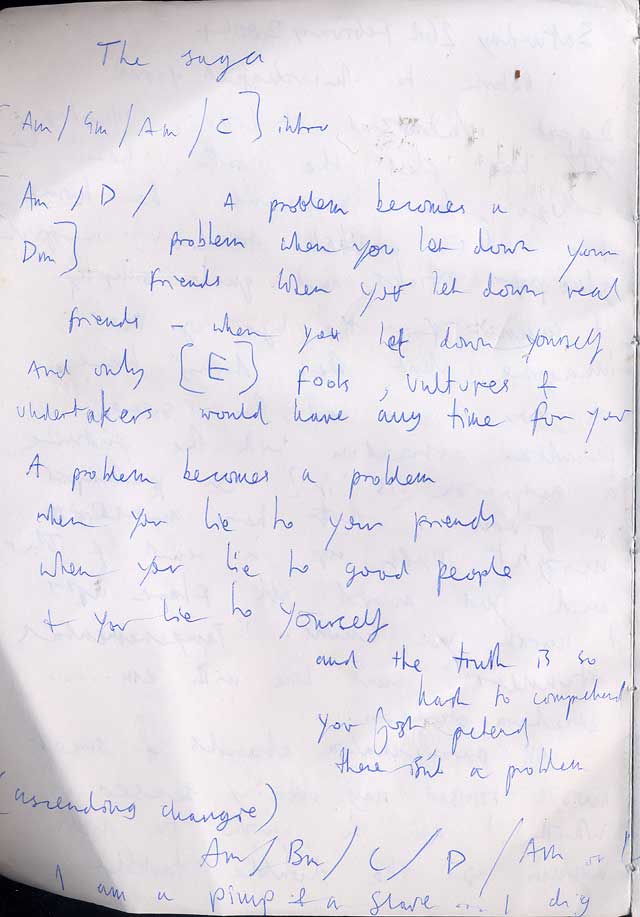 The saga
[Am / Gm / Am / C ] intro
Am / D / A problem becomes a
Dm ] problem when you let down your
friends when you let down real
friends - when you let down yourself
And only [E] fools, vultures &
undertakers would have any time for you
A problem becomes a problem
when you lie to your friends
when you lie to good people
& you lie to yourself
and the truth is so
hash to comprehend
you just pretend
there isn't a problem
(ascending changie)
Am / Bm / C / D / Am or
I am a pimp & a slave ... I dig